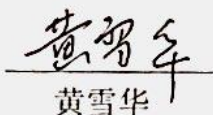 黄雪华
黄雪华